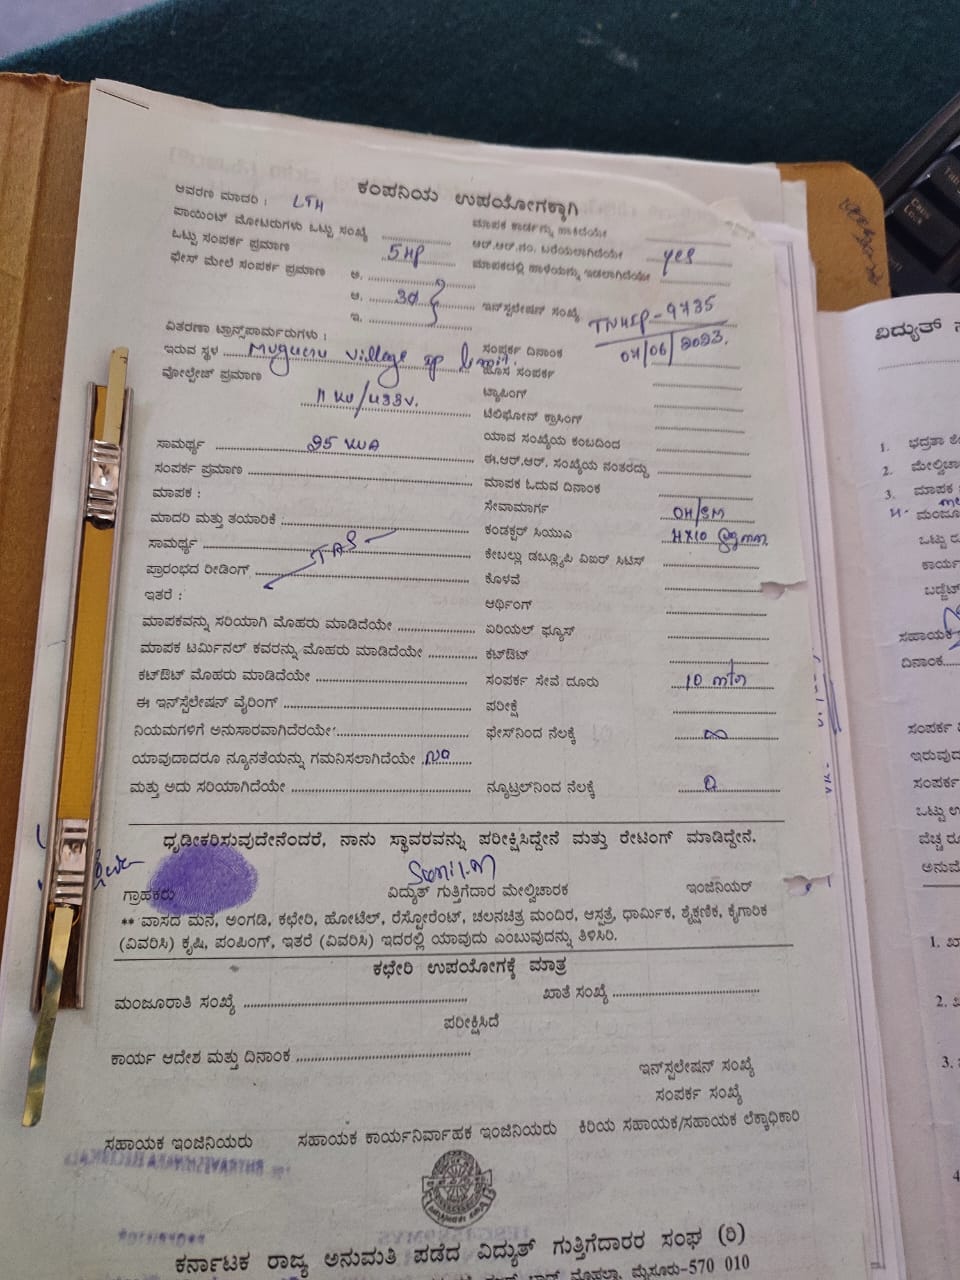 ಕಂಪನಿಯ ಉಪಯೋಗಕ್ಕಾಗಿ
ಆವರಣ ಮಾದರಿ : LTH
ಪಾಯಿಂಟ್ ಮೋಟರುಗಳು ಒಟ್ಟು ಸಂಖ್ಯೆ
ಮಾಪಕ ಕಾರ್ಡನ್ನು ಹಾಕಿದೆಯೇ
ಒಟ್ಟು ಸಂಪರ್ಕ ಪ್ರಮಾಣ 5HP
ಆರ್.ಆರ್.ನಂ. ಬರೆಯಲಾಗಿದೆಯೇ yes
ಫೇಸ್ ಮೇಲೆ ಸಂಪರ್ಕ ಪ್ರಮಾಣ ಅ.
ಮಾಪಕದಲ್ಲಿ ಹಾಳೆಯನ್ನು ಇಡಲಾಗಿದೆಯೇ
ಆ. 3Ø
ಇನ್‌ಸ್ಟಲೇಷನ್ ಸಂಖ್ಯೆ TNHIP-9735
ಇ.
ವಿತರಣಾ ಟ್ರಾನ್ಸ್‌ಪಾರ್ಮರುಗಳು :
ಸಂಪರ್ಕ ದಿನಾಂಕ 07/06/2023.
ಇರುವ ಸ್ಥಳ Muguru village
ಹೊಸ ಸಂಪರ್ಕ
ವೋಲ್ಟೇಜ್ ಪ್ರಮಾಣ
ಟ್ಯಾಪಿಂಗ್
11 KV/433V.
ಟೆಲಿಫೋನ್ ಕ್ರಾಸಿಂಗ್
ಸಾಮರ್ಥ್ಯ 25 KVA
ಯಾವ ಸಂಖ್ಯೆಯ ಕಂಬದಿಂದ
ಸಂಪರ್ಕ ಪ್ರಮಾಣ
ಈ.ಆರ್.ಆರ್. ಸಂಖ್ಯೆಯ ನಂತರದ್ದು
ಮಾಪಕ :
ಮಾಪಕ ಓದುವ ದಿನಾಂಕ
ಮಾದರಿ ಮತ್ತು ತಯಾರಿಕೆ :
ಸೇವಾಮಾರ್ಗ OH/SM
ಸಾಮರ್ಥ್ಯ
ಕಂಡಕ್ಟರ್ ಸಿಯುಎ
ಪ್ರಾರಂಭದ ರೀಡಿಂಗ್
ಕೇಬಲ್ಲು ಡಬ್ಲ್ಯೂಪಿ ವಿಐರ್ ಸಿಟಿಸ್
ಇತರೆ :
ಕೊಳವೆ
ಆರ್ಥಿಂಗ್
ಮಾಪಕವನ್ನು ಸರಿಯಾಗಿ ಮೊಹರು ಮಾಡಿದೆಯೇ
ಏರಿಯಲ್ ಫ್ಯೂಸ್
ಮಾಪಕ ಟರ್ಮಿನಲ್ ಕವರನ್ನು ಮೊಹರು ಮಾಡಿದೆಯೇ
ಕಟ್‌ಔಟ್
ಕಟ್‌ಔಟ್ ಮೊಹರು ಮಾಡಿದೆಯೇ
ಸಂಪರ್ಕ ಸೇವೆ ದೂರು 10 mtr
ಈ ಇನ್‌ಸ್ಟೆಲೇಷನ್ ವೈರಿಂಗ್
ಪರೀಕ್ಷೆ
ನಿಯಮಗಳಿಗೆ ಅನುಸಾರವಾಗಿದೆರಯೇ
ಫೇಸ್‌ನಿಂದ ನೆಲಕ್ಕೆ ∞
ಯಾವುದಾದರೂ ನ್ಯೂನತೆಯನ್ನು ಗಮನಿಸಲಾಗಿದೆಯೇ No
ಮತ್ತು ಅದು ಸರಿಯಾಗಿದೆಯೇ
ನ್ಯೂಟ್ರಲ್‌ನಿಂದ ನೆಲಕ್ಕೆ 0
ಧೃಡೀಕರಿಸುವುದೇನೆಂದರೆ, ನಾನು ಸ್ಥಾವರವನ್ನು ಪರೀಕ್ಷಿಸಿದ್ದೇನೆ ಮತ್ತು ರೇಟಿಂಗ್ ಮಾಡಿದ್ದೇನೆ.
Sunil.M
ಗ್ರಾಹಕರು ವಿದ್ಯುತ್ ಗುತ್ತಿಗೆದಾರ ಮೇಲ್ವಿಚಾರಕ ಇಂಜಿನಿಯರ್
** ವಾಸದ ಮನೆ, ಅಂಗಡಿ, ಕಛೇರಿ, ಹೋಟೆಲ್, ರೆಸ್ಟೋರೆಂಟ್, ಚಲನಚಿತ್ರ ಮಂದಿರ, ಆಸ್ಪತ್ರೆ, ಧಾರ್ಮಿಕ, ಶೈಕ್ಷಣಿಕ, ಕೈಗಾರಿಕ
(ವಿವರಿಸಿ) ಕೃಷಿ, ಪಂಪಿಂಗ್, ಇತರೆ (ವಿವರಿಸಿ) ಇದರಲ್ಲಿ ಯಾವುದು ಎಂಬುವುದನ್ನು ತಿಳಿಸಿರಿ.
ಕಛೇರಿ ಉಪಯೋಗಕ್ಕೆ ಮಾತ್ರ
ಮಂಜೂರಾತಿ ಸಂಖ್ಯೆ ಖಾತೆ ಸಂಖ್ಯೆ
ಪರೀಕ್ಷಿಸಿದೆ
ಕಾರ್ಯ ಆದೇಶ ಮತ್ತು ದಿನಾಂಕ
ಇನ್‌ಸ್ಟಲೇಷನ್ ಸಂಖ್ಯೆ
ಸಂಪರ್ಕ ಸಂಖ್ಯೆ
ಸಹಾಯಕ ಇಂಜಿನಿಯರು ಸಹಾಯಕ ಕಾರ್ಯನಿರ್ವಾಹಕ ಇಂಜಿನಿಯರು ಕಿರಿಯ ಸಹಾಯಕ/ಸಹಾಯಕ ಲೆಕ್ಕಾಧಿಕಾರಿ
ಕರ್ನಾಟಕ ರಾಜ್ಯ ಅನುಮತಿ ಪಡೆದ ವಿದ್ಯುತ್ ಗುತ್ತಿಗೆದಾರರ ಸಂಘ (ರಿ)
ಮೊಹಲ್ಲಾ, ಮೈಸೂರು-570 010
ವಿದ್ಯುತ್
1.
2.
3. ಮಾಪಕ
ಒಟ್ಟು
ದಿನಾಂಕ
ಸಂಪರ್ಕ
ಇರುವುದ
ಸಂಪರ್ಕ
ಒಟ್ಟು
ವೆಚ್ಚ
1.
2.
3.
Caps Lock
Tab